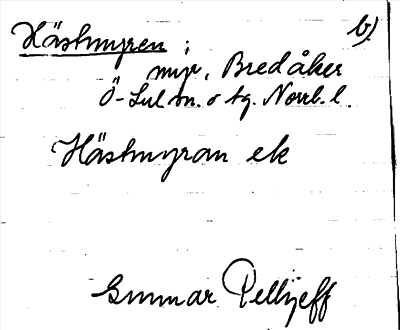 b)
Hästmyren ;
myr, Bredåker
Ö-Lul sn. o tg. Norrb. l.
Hästmyran ek
Gunnar Pellijeff